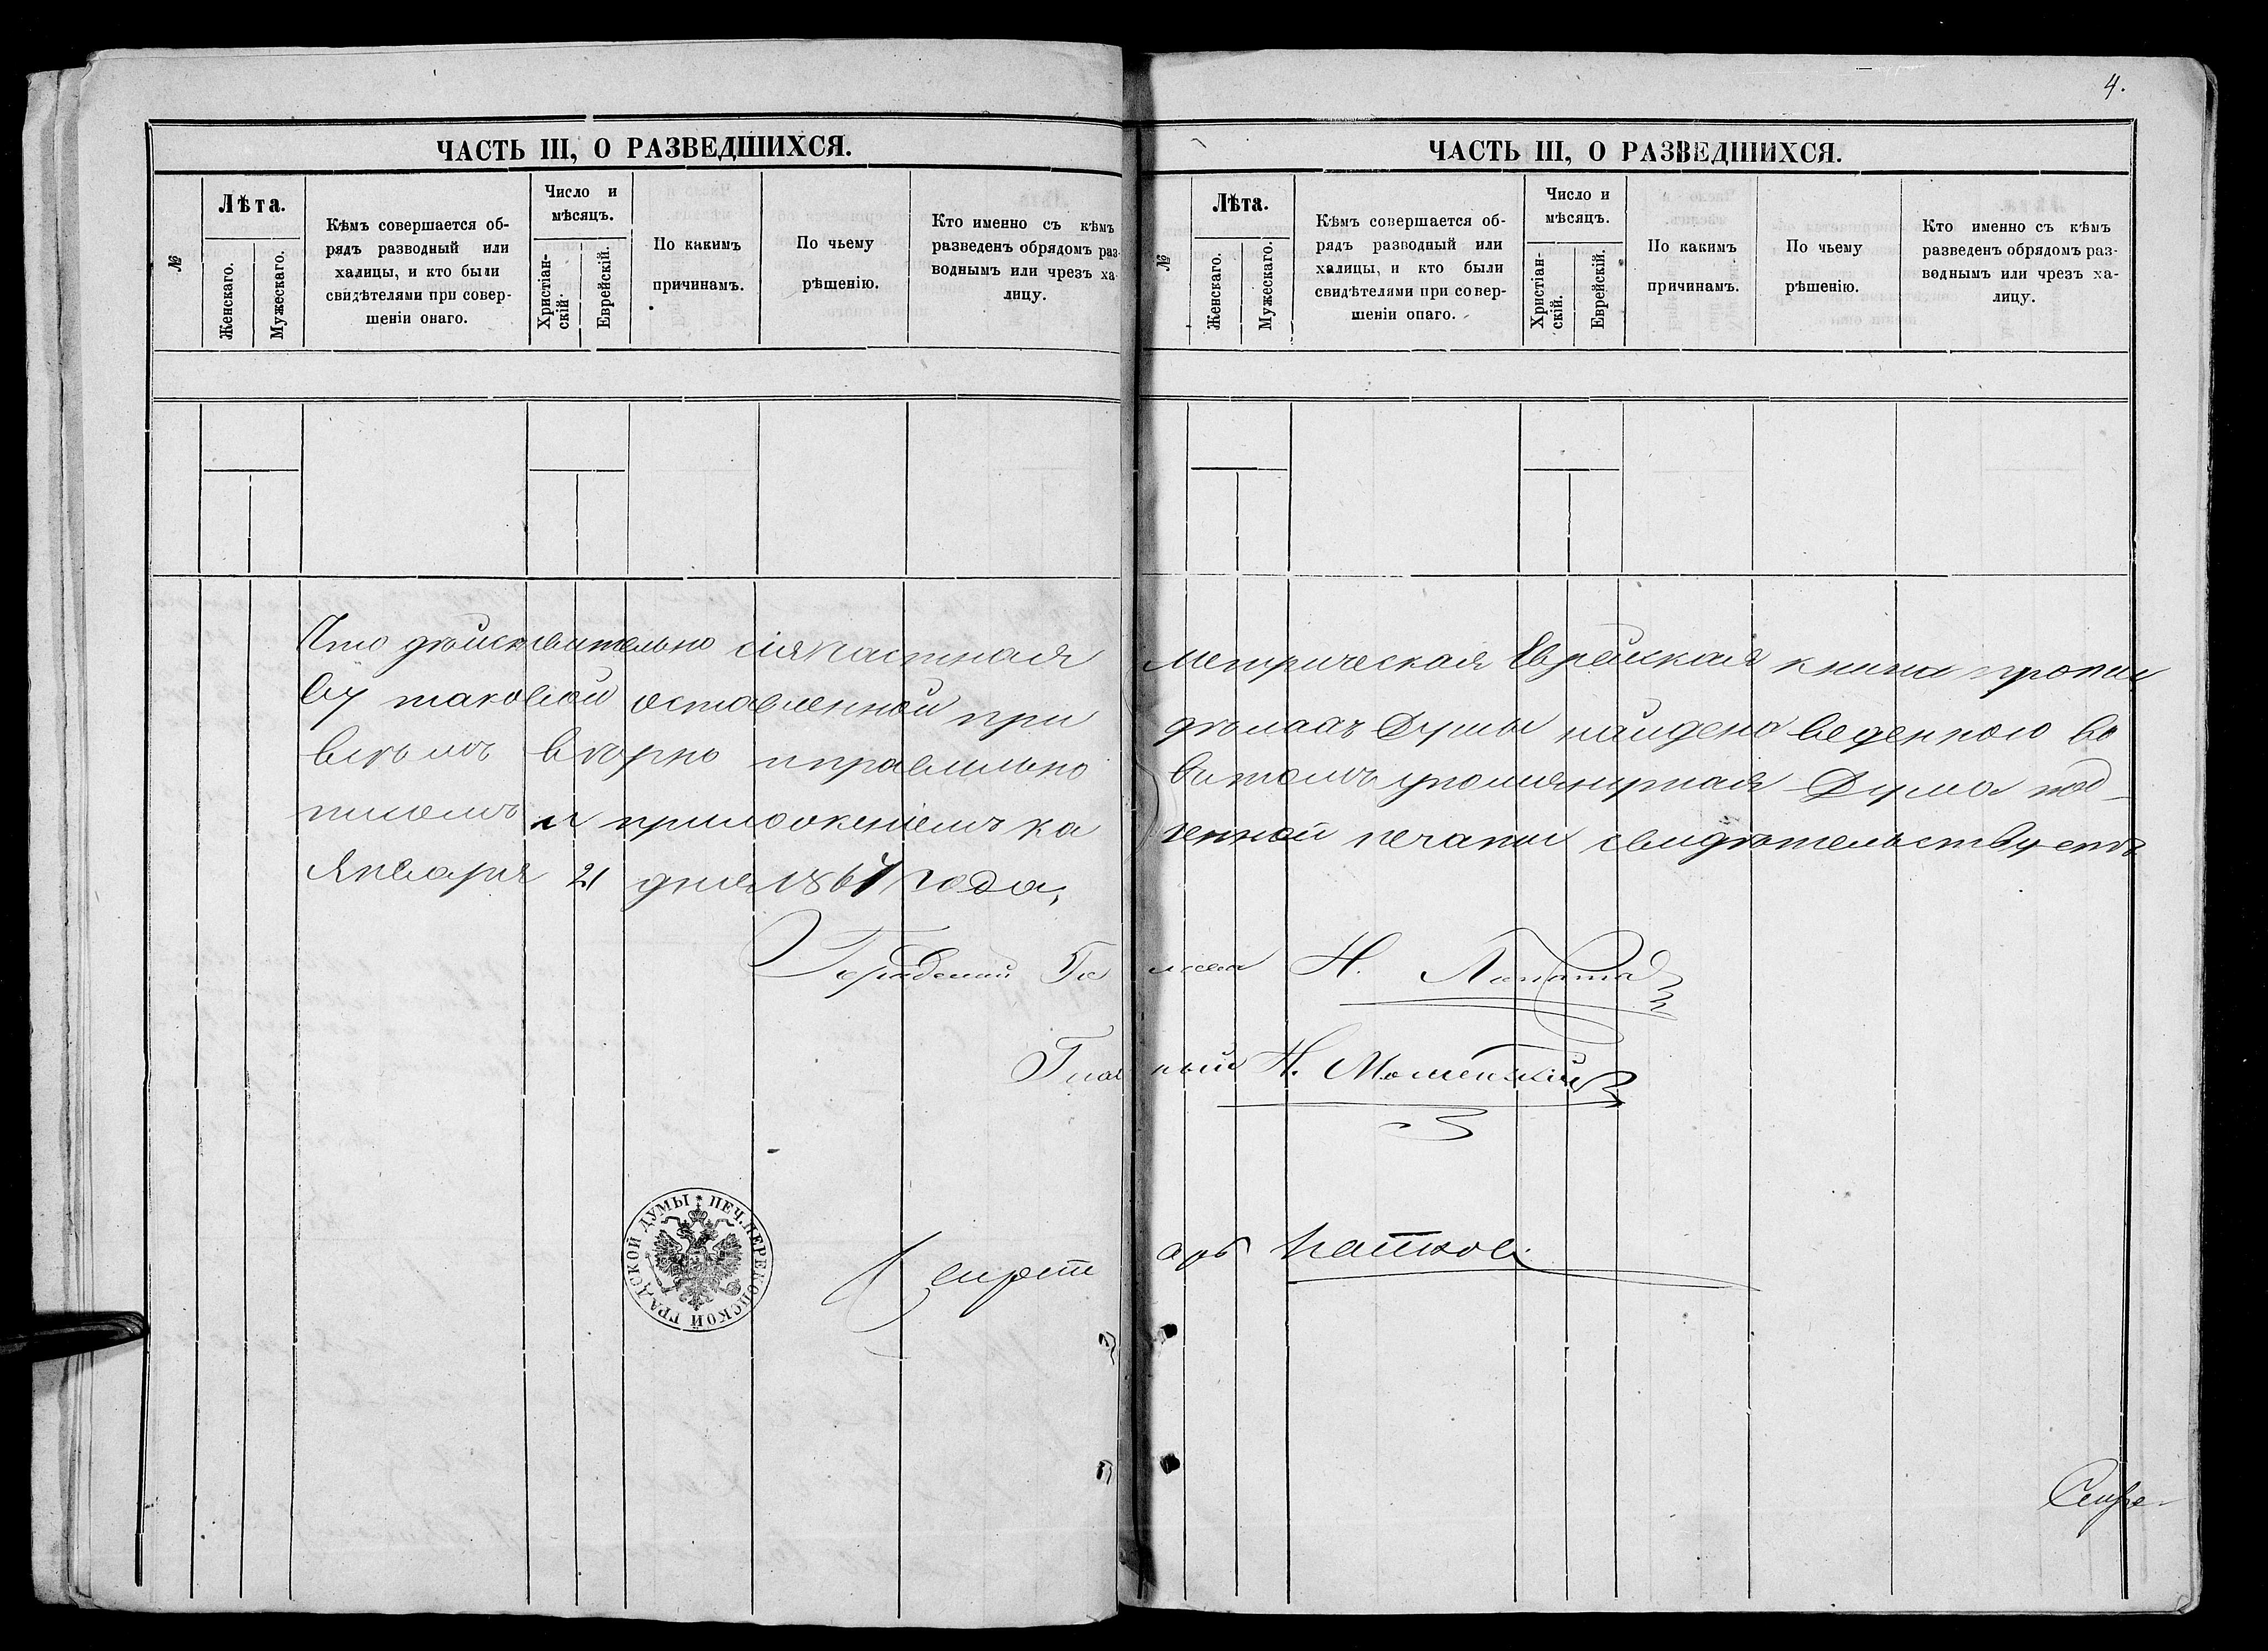 4.
ЧАСТЬ III, О РАЗВЕДШИХСЯ.
№
Лѣта.
Женскаго.
Мужескаго.
Кѣмъ совершается об-
рядъ разводный или
халицы, и кто были
свидѣтелями при совер-
шеніи онаго.
Число и
мѣсяцъ.
Христіан-
скій.
Еврейскій.
По какимъ
причинамъ.
По чьему
рѣшенію.
Кто именно съ кѣмъ
разведенъ обрядомъ раз-
воднымъ или чрезъ ха-
лицу.
ЧАСТЬ III, О РАЗВЕДШИХСЯ.
№
Лѣта.
Женскаго.
Мужескаго.
Кѣмъ совершается об-
рядъ разводный или
халицы, и кто были
свидѣтелями при совер-
шеніи онаго.
Число и
мѣсяцъ.
Христіан-
скій.
Еврейскій.
По какимъ
причинамъ.
По чьему
рѣшенію.
Кто именно съ кѣмъ
разведенъ обрядомъ раз-
воднымъ или чрезъ ха-
лицу.
Что дѣйствительно сія частная метрическая Еврейская книга против
въ таковой оставленной при дѣлахъ Думы найдено веденною во
всѣмъ вѣрно и правильно въ томъ упомянутая Дума под-
писомъ и приложеніемъ казенной печати свидѣтельствуетъ
Января 21 дня 1864 года,
Городской Голова Н.
Гласный Н.
Секретарь
ПЕЧ. ПЕРЕКОПСКОЙ ГРАДСКОЙ ДУМЫ
Секре-